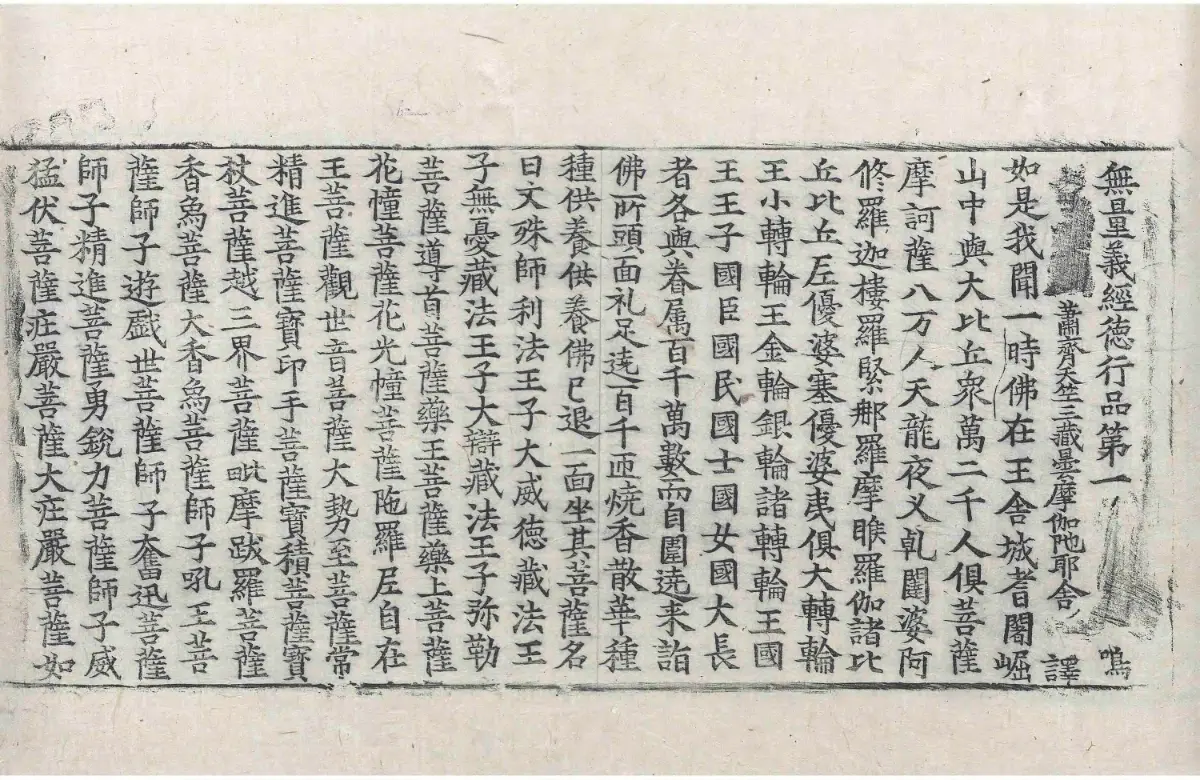 無量義經德行品第一 鳴
蕭齊天竺三藏曇摩伽陁耶舍 譯
如是我聞一時佛在王舍城耆闍崛
山中與大比丘衆萬二千人俱菩薩
摩訶薩八万人天龍夜叉乹闥婆阿
修羅迦樓羅緊那羅摩睺羅伽諸比
丘比丘尼優婆塞優婆夷俱大轉輪
王小轉輪王金輪銀輪諸轉輪王國
王王子國臣國民國士國女國大長
者各與眷属百千萬數而自圍遶来詣
佛所頭面礼足遶百千匝燒香散華種
種供養供養佛已退一面坐其菩薩名
曰文殊師利法王子大威德藏法王
子無憂藏法王子大辯藏法王子弥勒
菩薩導首菩薩藥王菩薩藥上菩薩
花幢菩薩花光幢菩薩陁羅尼自在
王菩薩觀世音菩薩大勢至菩薩常
精進菩薩寶印手菩薩寶積菩薩寶
杖菩薩越三界菩薩毗摩跋羅菩薩
香烏菩薩大香烏菩薩師子吼王菩
薩師子遊戲世菩薩師子奮迅菩薩
師子精進菩薩勇銳力菩薩師子威
猛伏菩薩庄嚴菩薩大庄嚴菩薩如